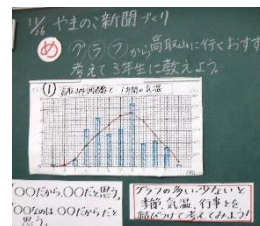 11/6 やまのこ新聞づくり
め グラフから高取山に行くおすす
考えて3年生に教えよう。
① 高取山の回数と1年間の気温
「〇〇だから、〇〇だと思う。
〇〇なのは、〇〇だからだと
思う。
グラフの多い・少ないと
季節、気温、行事とを
結びつけて考えてみよう！